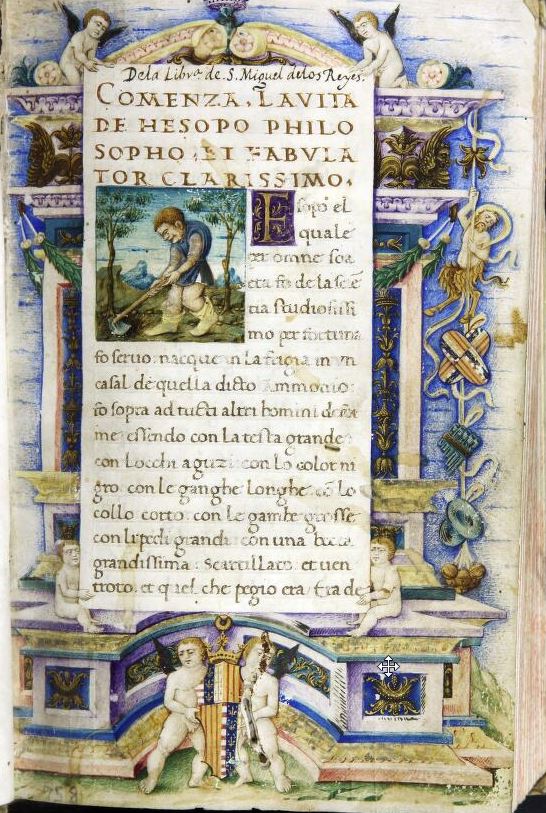 Dela Libra. de S. Miguel delos Reyes.
COMENZA. LA VITA
DE HESOPO PHILO
SOPHO. ET FABVLA
TOR CLARISSIMO.
Esopo el
quale
per omne soa
eta fo de la
tia studiosissi
mo per fortuna
fo seruo: nacque in la frigia in vn
casal de quella dicto Ammonio:
fo sopra ad tucti altri homini
me essendo con la testa grande
con locchi aguzi: con lo color ni
gro. con le ganghe longhe. co lo
collo cotto: con le gambe grosse
con li piedi grandi: con una bocca
grandissima: scartillato: et uen
troto. et quel che pegio era / Era de